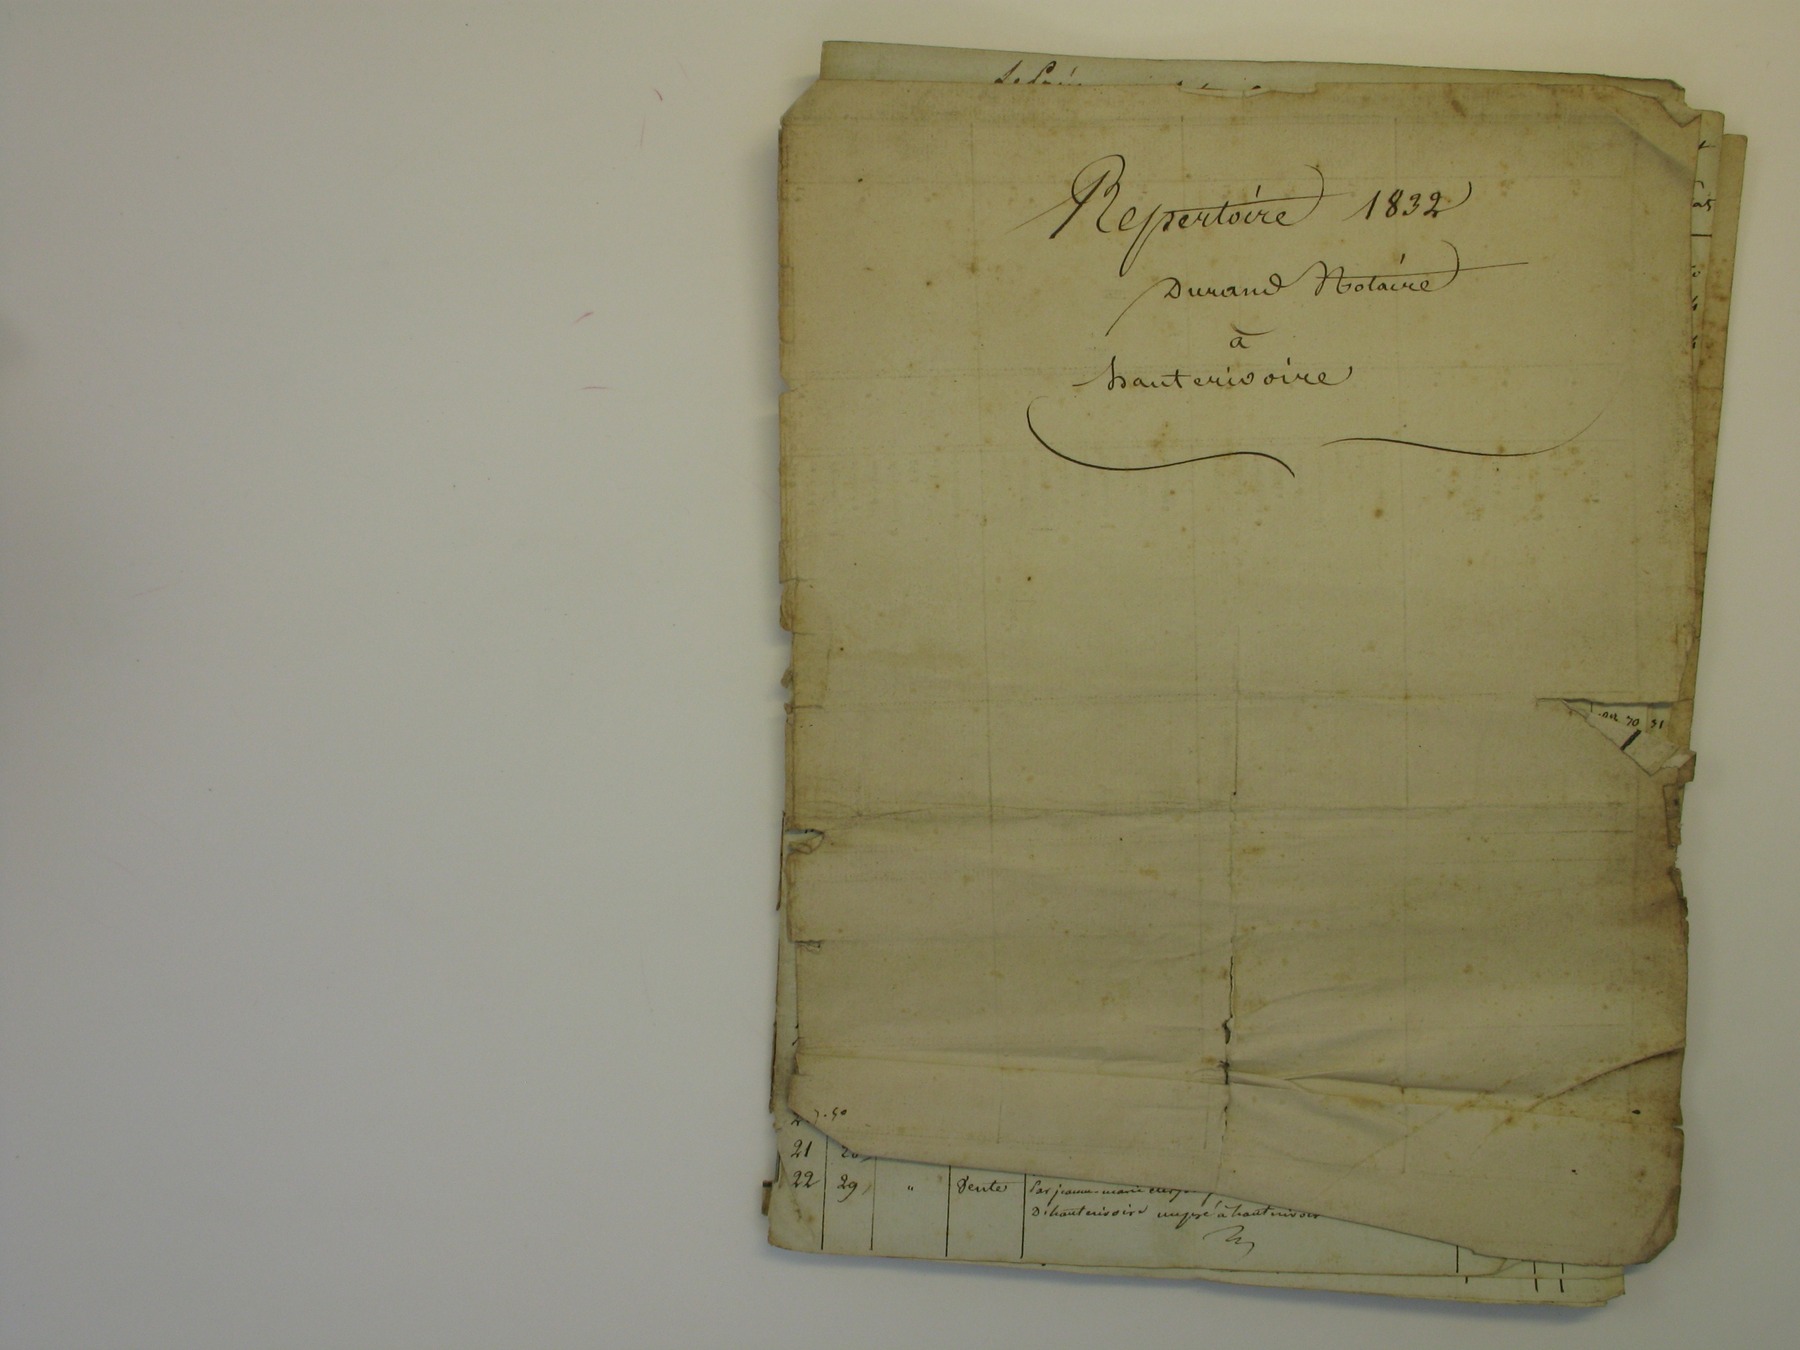 Repertoire 1832
Durand Notaire
à
hauterivoire
70 51
21
22 29 " Vente Par jeanne-marie
D'hauterivoire un pré à hauterivoire